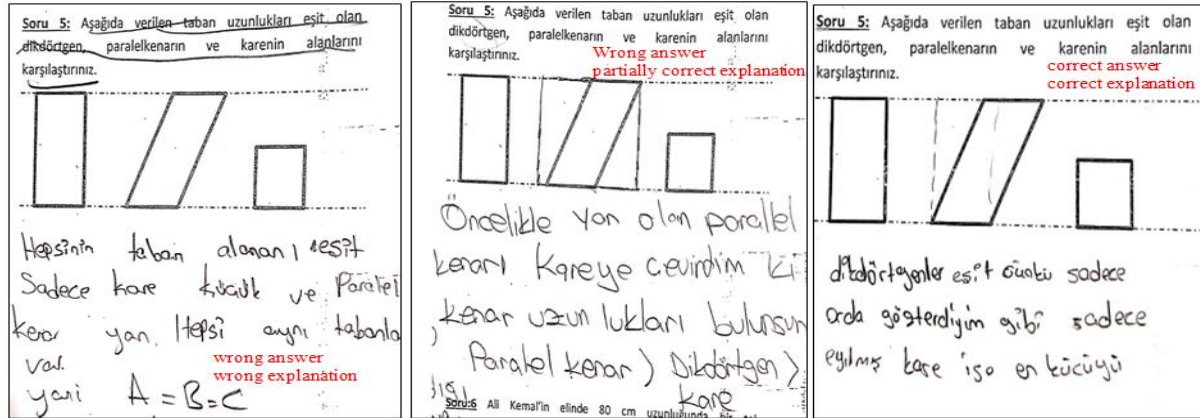 Soru 5: Aşağıda verilen taban uzunlukları eşit olan
dikdörtgen, paralelkenarın ve karenin alanlarını
karşılaştırınız.
Hepsinin taban alanan ı eşit
Sadece kare küçük ve Paralel
kenar yan. Hepsi aynı tabanla
var.
yani A = B = C
wrong answer
wrong explanation
Soru 5: Aşağıda verilen taban uzunlukları eşit olan
dikdörtgen, paralelkenarın ve karenin alanlarını
karşılaştırınız.
Wrong answer
partially correct explanation
Öncelikle yan olan parallel
kenarı Kareye çevirdim ki
, kenar uzunlukları bulunsun
Paralel kenar > Dikdörtgen >
kare
Soru:6 Ali Kemal'in elinde 80 cm uzunluğunda bir
Soru 5: Aşağıda verilen taban uzunlukları eşit olan
dikdörtgen, paralelkenarın ve karenin alanlarını
karşılaştırınız.
correct answer
correct explanation
dikdörtgenler eşit çünkü sadece
orda gösterdiyim gibi sadece
eyilmiş kare ise en küçüyü